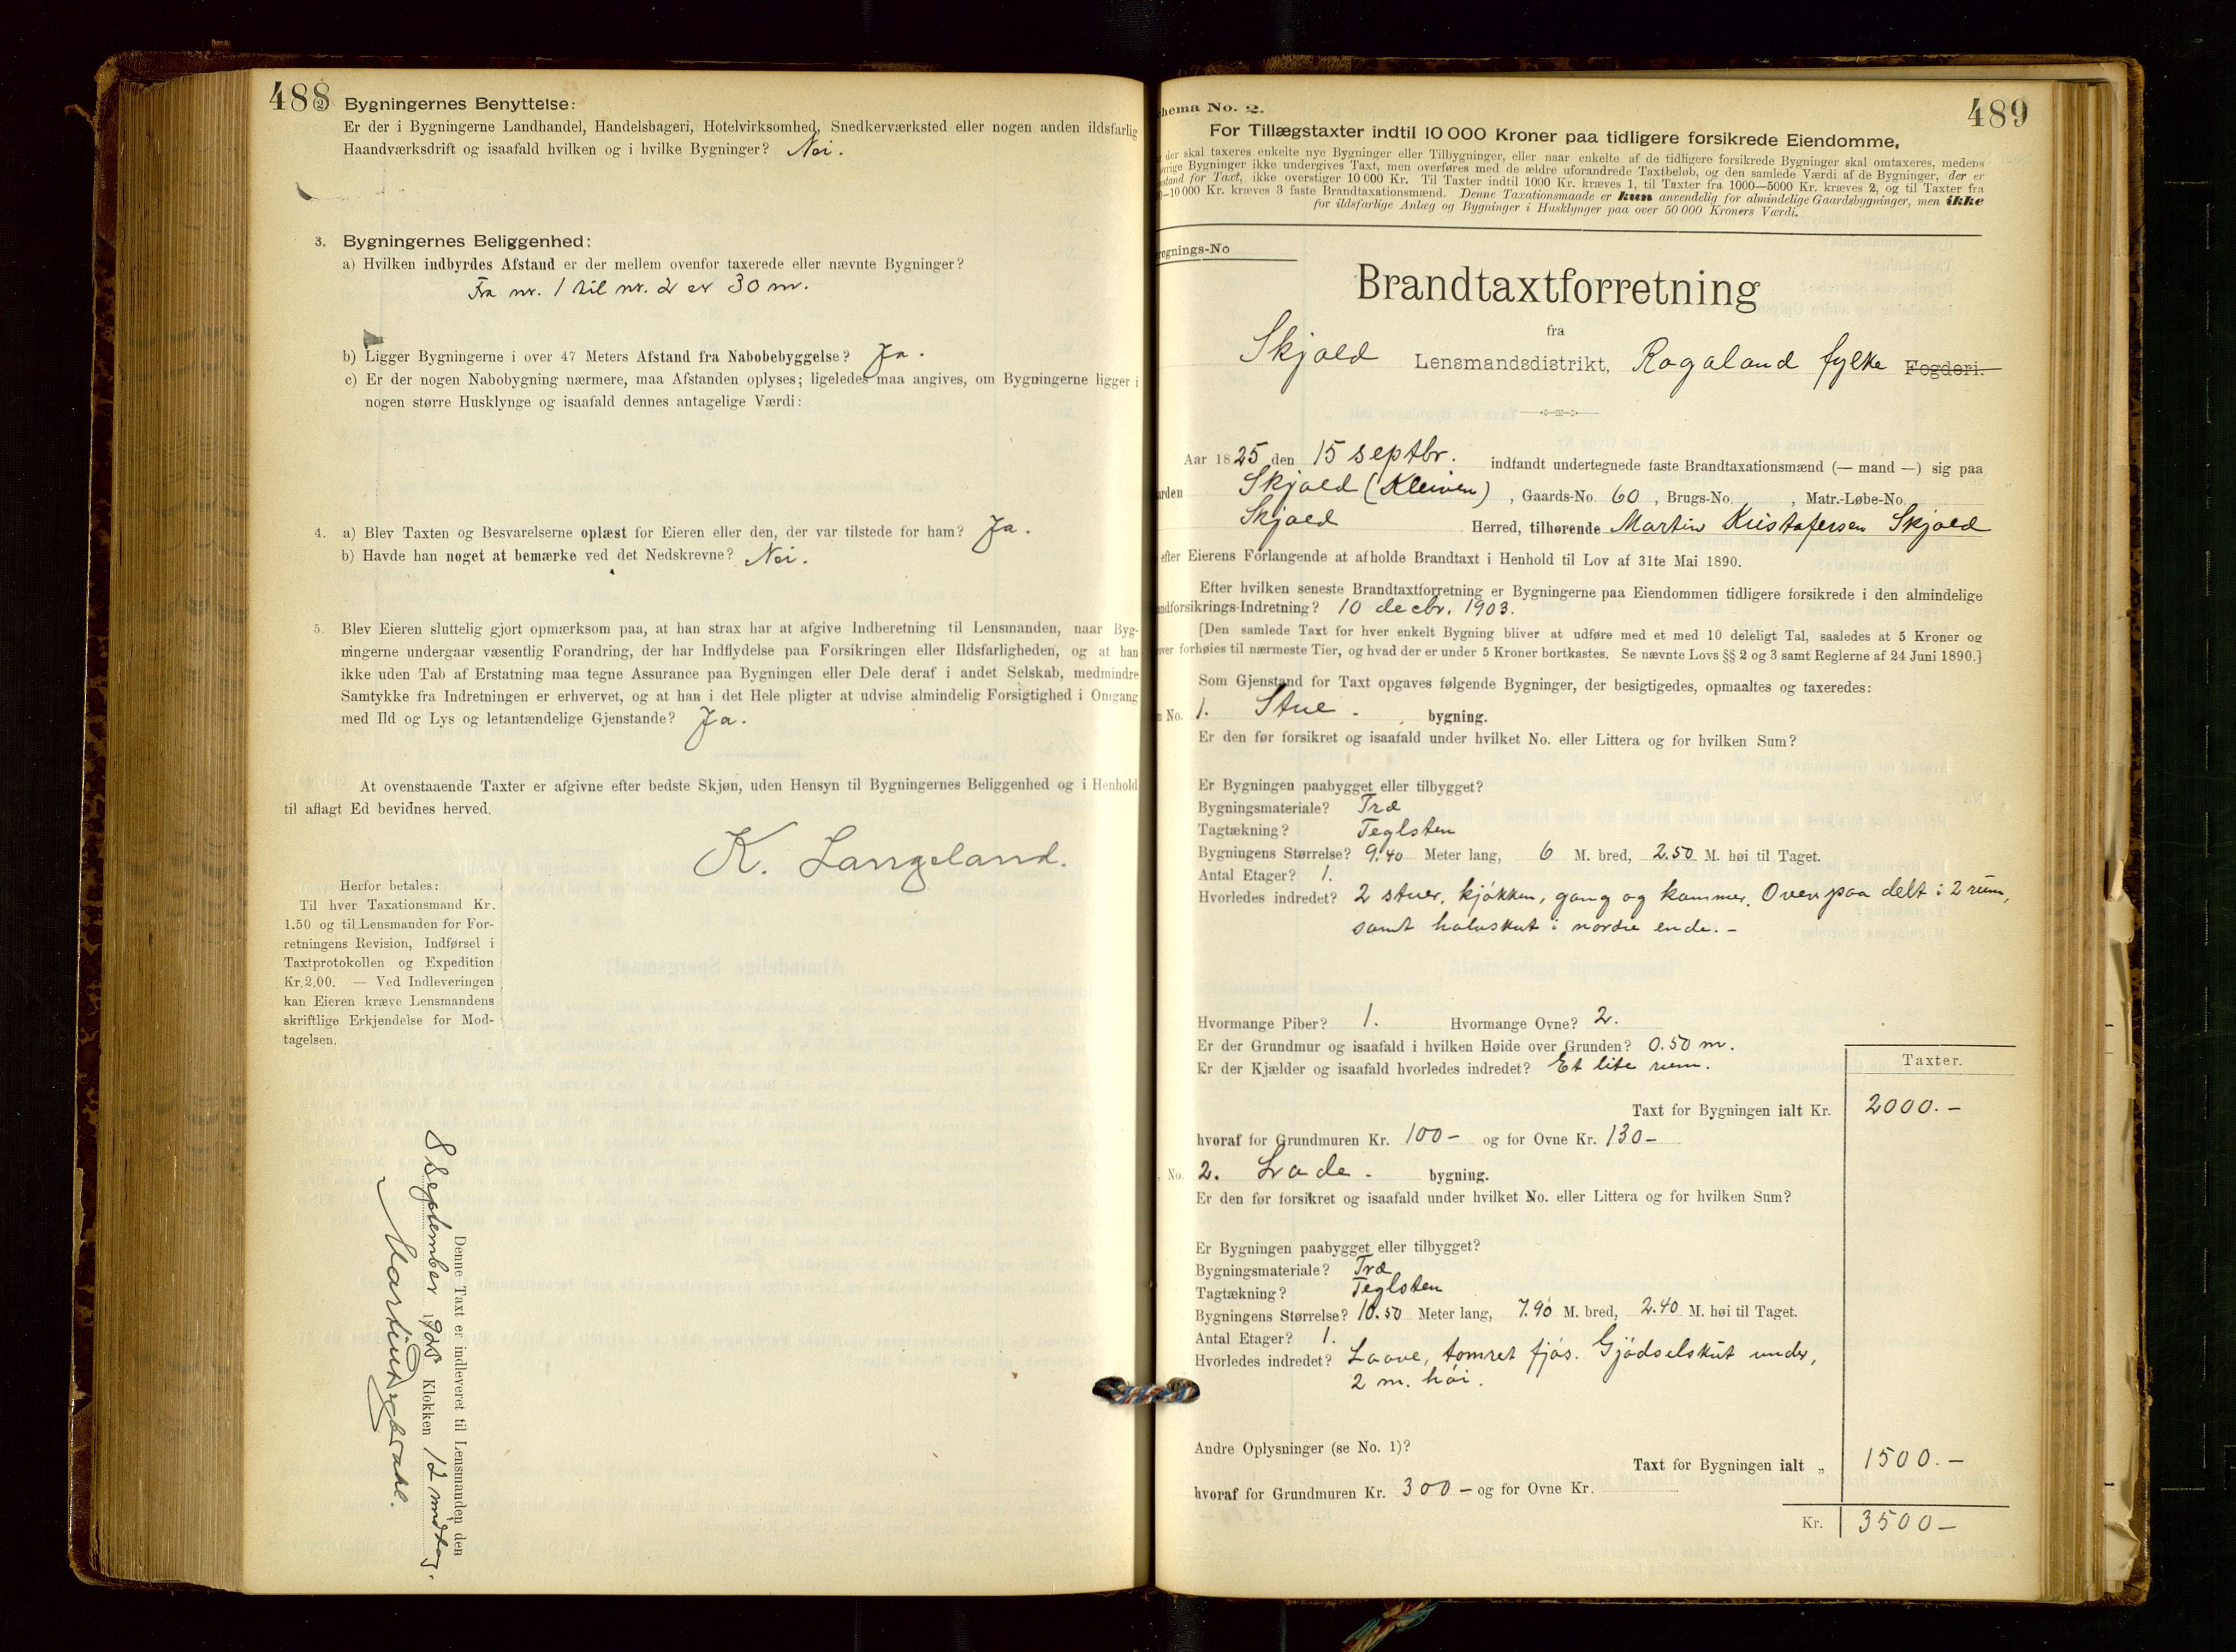 488
2. Bygningernes Benyttelse:
Er der i Bygningerne Landhandel, Handelsbageri, Hotelvirksomhed, Snedkerværksted eller nogen anden ildsfarlig
Haandværksdrift og isaafald hvilken og i hvilke Bygninger? Nei.
3. Bygningernes Beliggenhed:
a) Hvilken indbyrdes Afstand er der mellem ovenfor taxerede eller nævnte Bygninger?
Fra nr. 1 til nr. 2 er 30 m.
b) Ligger Bygningerne i over 47 Meters Afstand fra Nabobebyggelse? Ja.
c) Er der nogen Nabobygning nærmere, maa Afstanden oplyses; ligeledes maa angives, om Bygningerne ligger i
nogen større Husklynge og isaafald dennes antagelige Værdi:
4. a) Blev Taxten og Besvarelserne oplæst for Eieren eller den, der var tilstede for ham? Ja.
b) Havde han noget at bemærke ved det Nedskrevne? Nei.
5. Blev Eieren sluttelig gjort opmærksom paa, at han strax har at afgive Indberetning til Lensmanden, naar Byg-
ningerne undergaar væsentlig Forandring, der har Indflydelse paa Forsikringen eller Ildsfarligheden, og at han
ikke uden Tab af Erstatning maa tegne Assurance paa Bygningen eller Dele deraf i andet Selskab, medmindre
Samtykke fra Indretningen er erhvervet, og at han i det Hele pligter at udvise almindelig Forsigtighed i Omgang
med Ild og Lys og letantændelige Gjenstande? Ja.
At ovenstaaende Taxter er afgivne efter bedste Skjøn, uden Hensyn til Bygningernes Beliggenhed og i Henhold
til aflagt Ed bevidnes herved.
K. Langeland.
Herfor betales:
Til hver Taxationsmand Kr.
1.50 og til Lensmanden for For-
retningens Revision, Indførsel i
Taxtprotokollen og Expedition
Kr. 2.00. — Ved Indleveringen
kan Eieren kræve Lensmandens
skriftlige Erkjendelse for Mod-
tagelsen.
Denne Taxt er indleveret til Lensmanden den
8 September 1925 Klokken 12 middag.
489
hema No. 2.
For Tillægstaxter indtil 10 000 Kroner paa tidligere forsikrede Eiendomme,
der skal taxeres enkelte nye Bygninger eller Tilbygninger, eller naar enkelte af de tidligere forsikrede Bygninger skal omtaxeres, medens
vrige Bygninger ikke undergives Taxt, men overføres med de ældre uforandrede Taxtbeløb, og den samlede Værdi af de Bygninger, der er
stand for Taxt, ikke overstiger 10 000 Kr. Til Taxter indtil 1000 Kr. kræves 1, til Taxter fra 1000—5000 Kr. kræves 2, og til Taxter fra
0—10 000 Kr. kræves 3 faste Brandtaxationsmænd. Denne Taxationsmaade er kun anvendelig for almindelige Gaardsbygninger, men ikke
for ildsfarlige Anlæg og Bygninger i Husklynger paa over 50 000 Kroners Værdi.
regnings-No
Brandtaxtforretning
fra
Skjold Lensmandsdistrikt, Rogaland fylke Fogderi.
Aar 1825 den 15 septbr. indfandt undertegnede faste Brandtaxationsmænd (— mand —) sig paa
arden Skjold (Kleiven), Gaards-No. 60, Brugs-No. , Matr.-Løbe-No.
Skjold Herred, tilhørende Martin Kristofersen Skjold
efter Eierens Forlangende at afholde Brandtaxt i Henhold til Lov af 31te Mai 1890.
Efter hvilken seneste Brandtaxtforretning er Bygningerne paa Eiendommen tidligere forsikrede i den almindelige
andforsikrings-Indretning? 10 decbr. 1903.
[Den samlede Taxt for hver enkelt Bygning bliver at udføre med et med 10 deleligt Tal, saaledes at 5 Kroner og
over forhøies til nærmeste Tier, og hvad der er under 5 Kroner bortkastes. Se nævnte Lovs §§ 2 og 3 samt Reglerne af 24 Juni 1890.]
Som Gjenstand for Taxt opgaves følgende Bygninger, der besigtigedes, opmaaltes og taxeredes:
No. 1. Stue. bygning.
Er den før forsikret og isaafald under hvilket No. eller Littera og for hvilken Sum?
Er Bygningen paabygget eller tilbygget?
Bygningsmateriale? Træ
Tagtækning? Teglsten
Bygningens Størrelse? 9.40 Meter lang, 6 M. bred, 2.50 M. høi til Taget.
Antal Etager? 1.
Hvorledes indredet? 2 stuer, kjøkken, gang og kammer. Ovenpaa delt i 2 rum,
samt halvskut i nordre ende. -
Hvormange Piber? 1. Hvormange Ovne? 2.
Er der Grundmur og isaafald i hvilken Høide over Grunden? 0.50 m.
Er der Kjælder og isaafald hvorledes indredet? Et lite rum.
Taxter.
Taxt for Bygningen ialt Kr. 2000.-
hvoraf for Grundmuren Kr. 100- og for Ovne Kr. 130-
No. 2. Lade. bygning.
Er den før forsikret og isaafald under hvilket No. eller Littera og for hvilken Sum?
Er Bygningen paabygget eller tilbygget?
Bygningsmateriale? Træ
Tagtækning? Teglsten
Bygningens Størrelse? 10.50 Meter lang, 7.90 M. bred, 2.40 M. høi til Taget.
Antal Etager? 1.
Hvorledes indredet? Laave, tømret fjøs. Gjødselskut under,
2 m. høi.
Andre Oplysninger (se No. 1)?
Taxt for Bygningen ialt „ 1500.-
hvoraf for Grundmuren Kr. 300- og for Ovne Kr.
Kr. 3500-